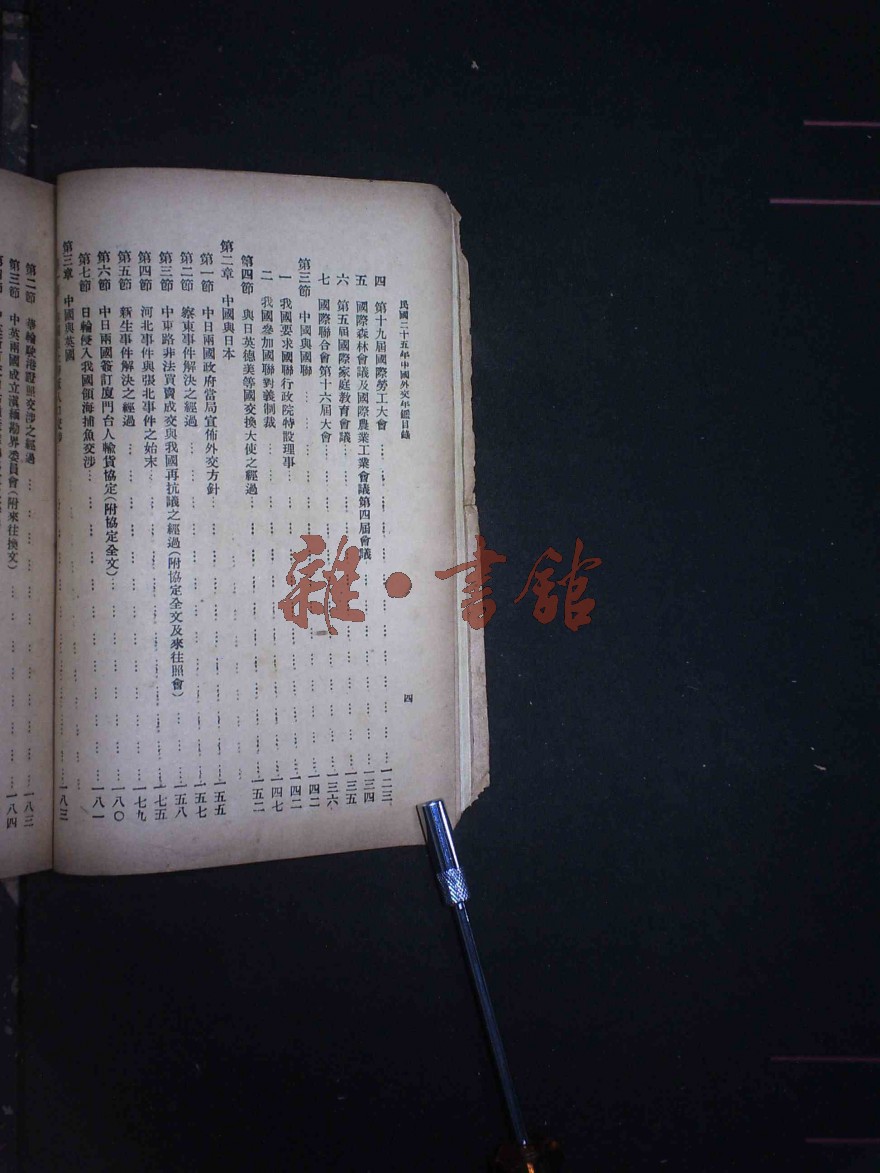 民國二十五年中國外交年鑑目錄
四
四 第十九屆國際勞工大會 一二三
五 國際森林會議及國際農業工業會議第四屆會議 一三四
六 第五屆國際家庭教育會議 一三五
七 國際聯合會第十六屆大會 一三六
第三節 中國與國聯 一四二
一 我國要求國聯行政院特設理事 一四二
二 我國參加國聯對義制裁 一四七
第四節 與日英德美等國交換大使之經過 一五二
第二章 中國與日本
第一節 中日兩國政府當局宣佈外交方針 一五五
第二節 察東事件解決之經過 一五七
第三節 中東路非法買賣成交與我國再抗議之經過(附協定全文及來往照會) 一五八
第四節 河北事件與張北事件之始末 一七五
第五節 新生事件解決之經過 一七九
第六節 中日兩國簽訂廈門台人輸貨協定(附協定全文) 一八〇
第七節 日輪侵入我國領海捕魚交涉 一八一
第三章 中國與英國
一八三
第二節 華輪駛港證照交涉之經過 一八三
第三節 中英兩國成立滇緬勘界委員會(附來往換文) 一八四
雜·書館